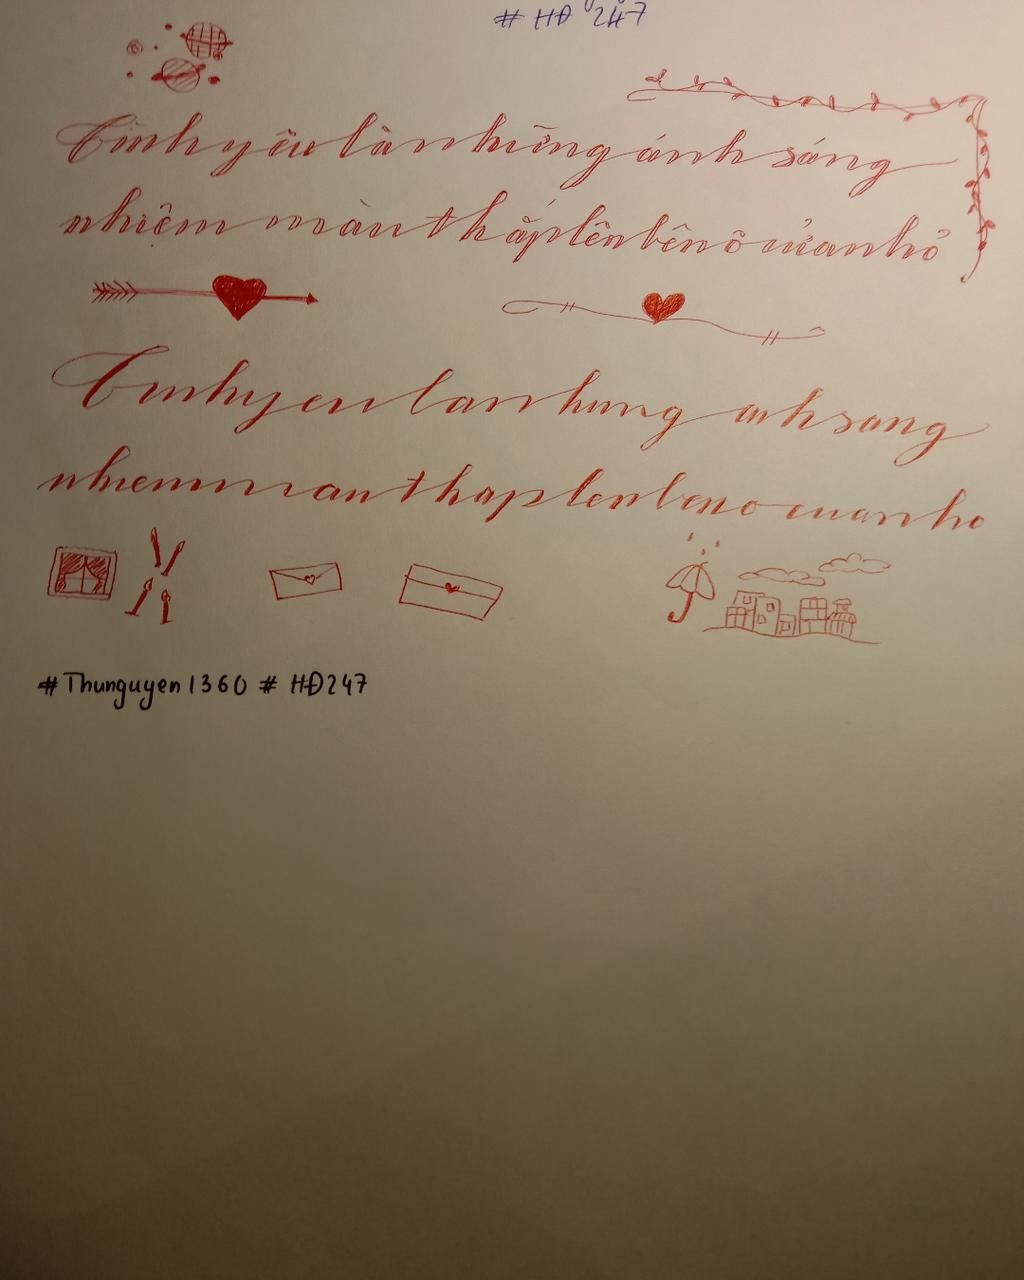 # HĐ 247
Tình yêu là những ánh sáng
nhiệm màu thắp lên bên ô cửa nhỏ
Tinh yeu la nhung anh sang
nhiem mau thap len ben o cua nho
#Thunguyen1360 # HĐ247